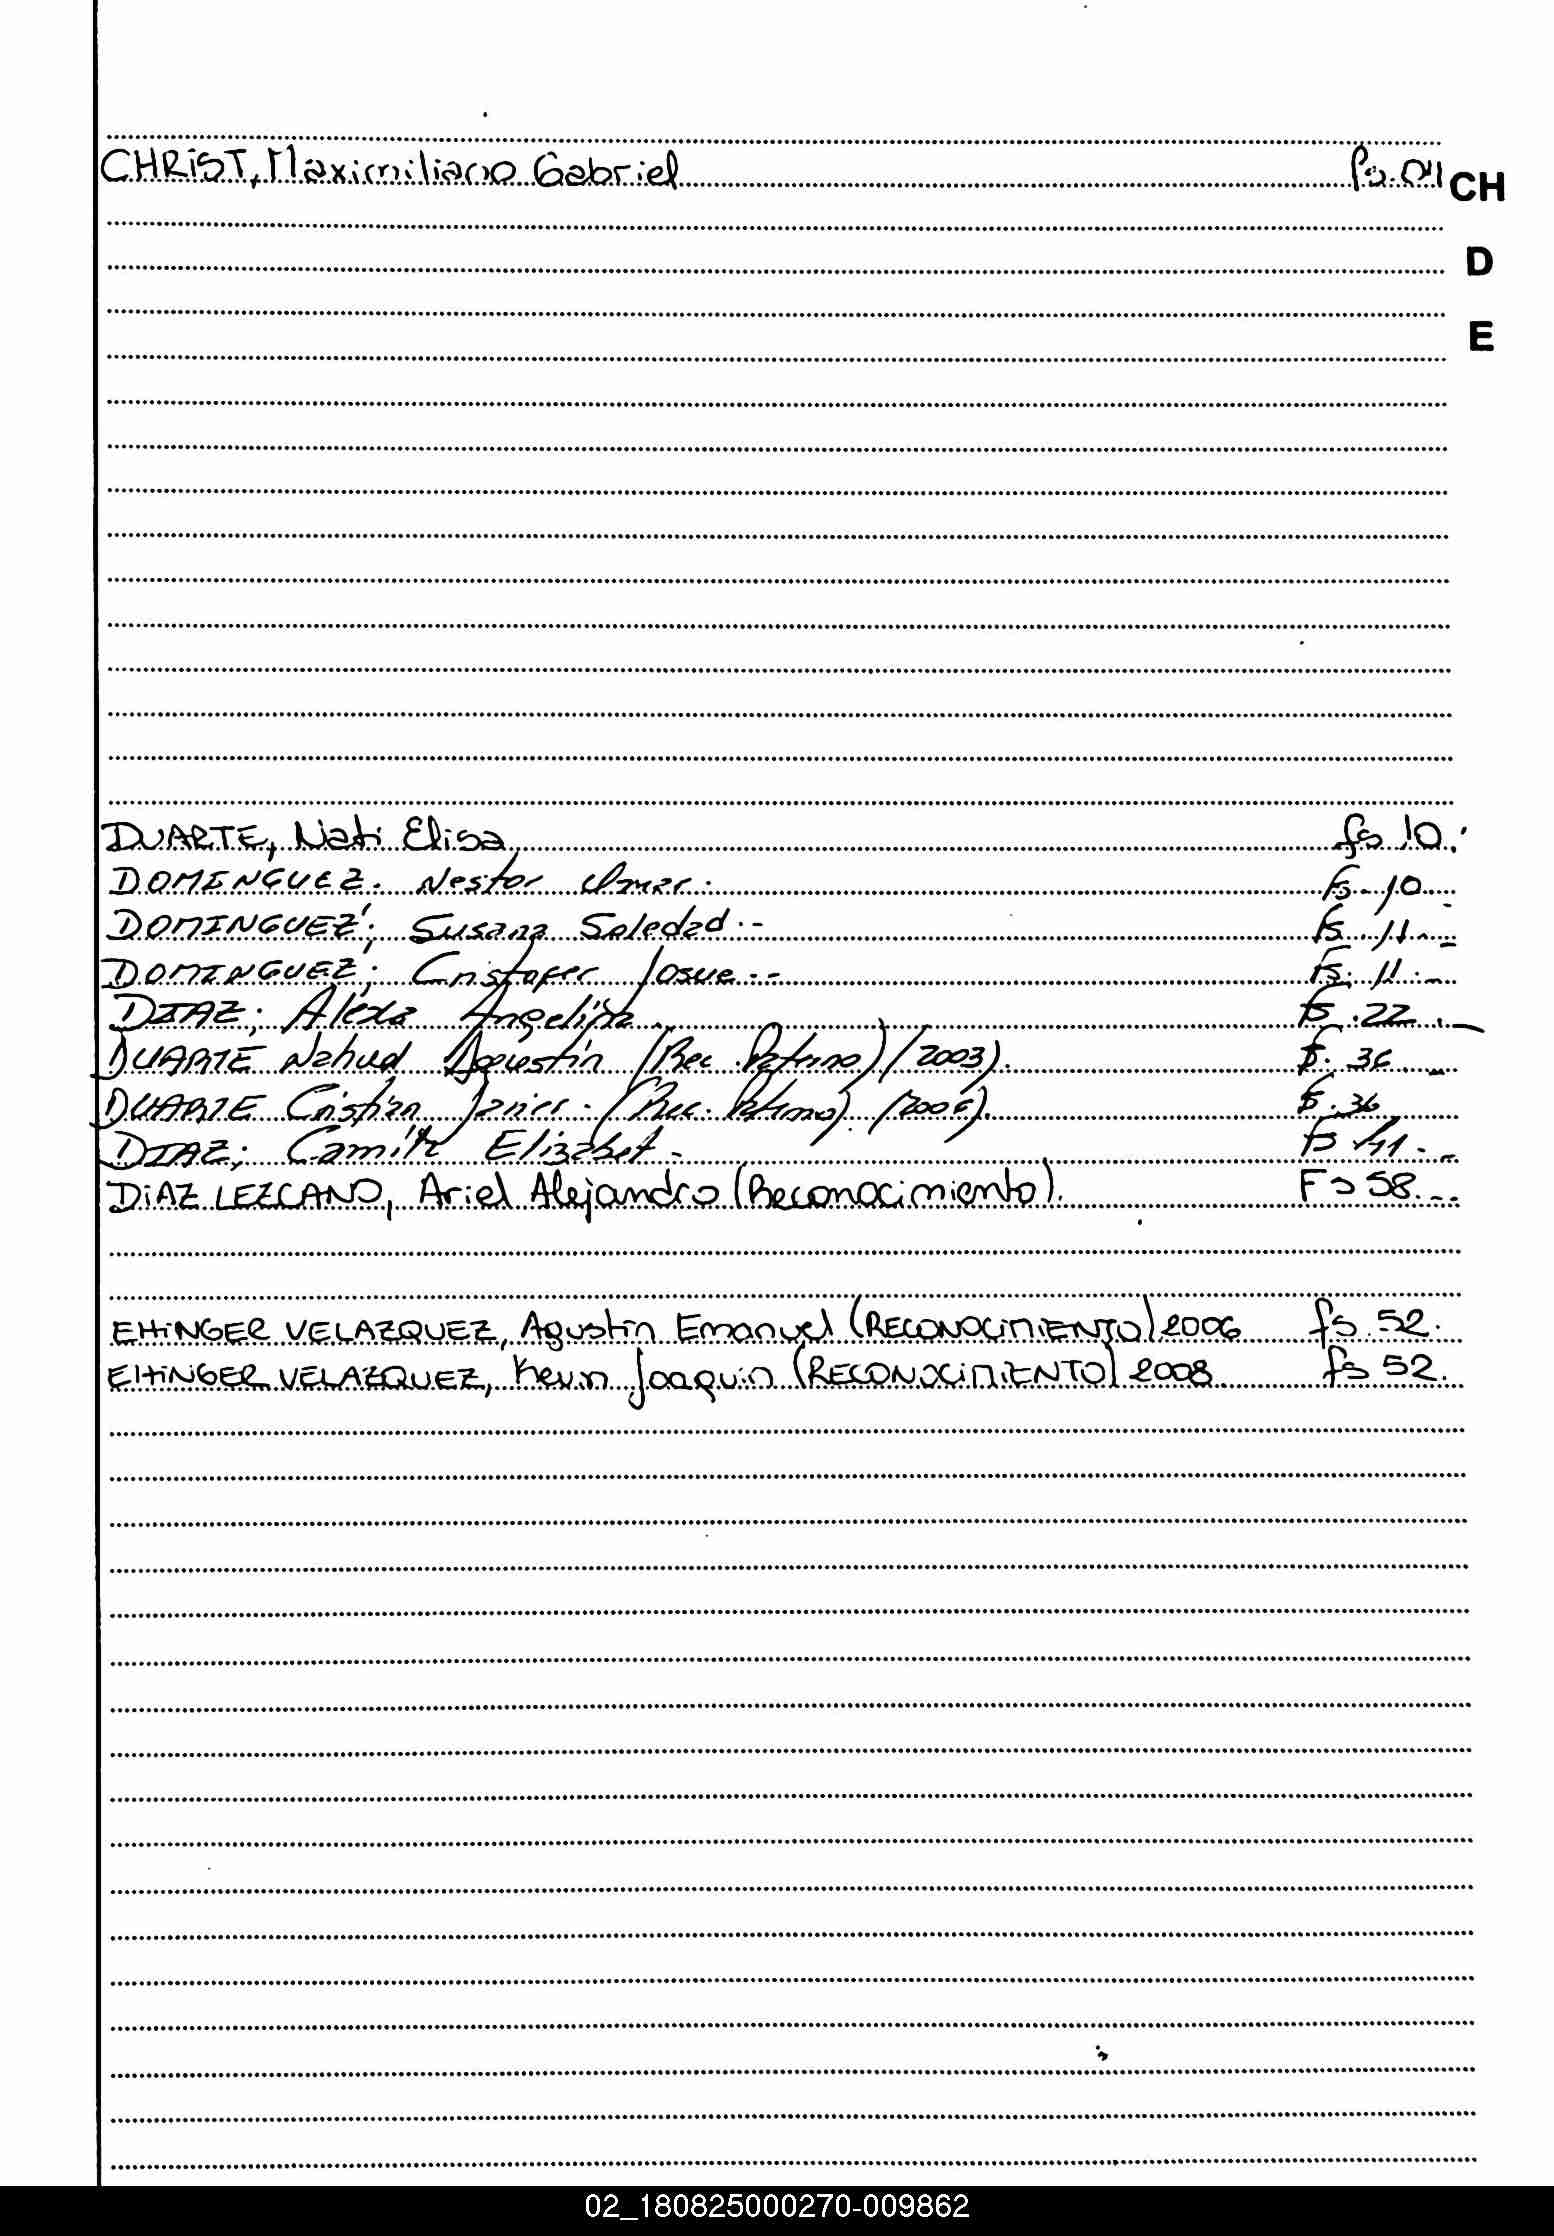 CHRIST, Maximiliano Gabriel fs. 04 CH
D
E
DUARTE, Nati Elisa fs 10.
DOMENGUEZ. Nestor Omar. Fs. 10.
DOMINGUEZ; Susana Soledad.- Fs. 11.-
DOMINGUEZ; Cristofer Josue.-- Fs. 11.-
DIAZ; Alexa Angelina. Fs. 22.-
DUARTE Nahud Agustin (Rec. Paterno) (2003). F. 36.-
DUARTE Cristian Javier. (Rec. Paterno) (2006). F. 36
DIAZ; Camila Elizabet.- Fs 41.-
DiAZ LEZCANO, Ariel Alejandro (Reconocimiento). Fs 58.--
EHiNGER VELAZQUEZ, Agustin Emanuel (RECONOCiMiENTO) 2006 fs. 52.
EHiNGER VELAZQUEZ, Kevin Joaquin (RECONOCiMiENTO) 2008 fs 52.
02_180825000270-009862